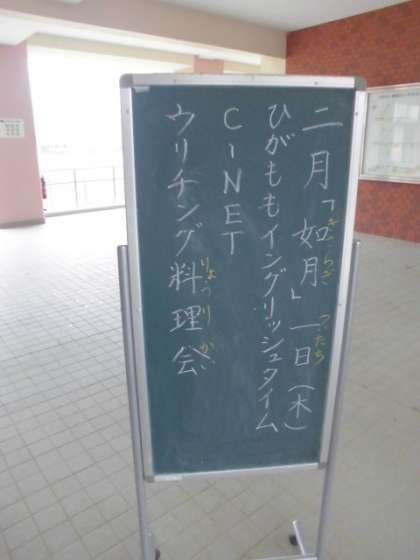 二月「如月」一日(木)
きさらぎ ついたち
ひがももイングリッシュタイム
C-NET
ウリチング料理会
りょうりかい